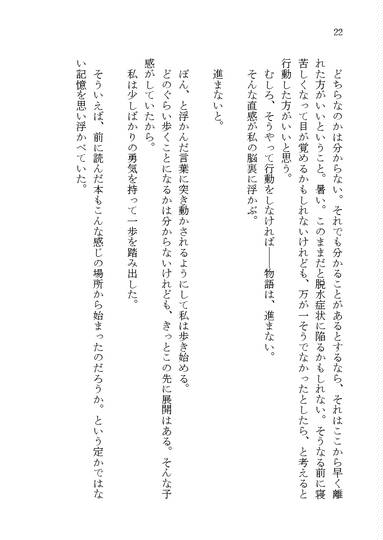 22
どちらなのかは分からない。それでも分かることがあるとするなら、それはここから早く離
れた方がいいということ。暑い。このままだと脱水症状に陥るかもしれない。そうなる前に寝
苦しくなって目が覚めるかもしれないけれども、万が一そうでなかったとしたら、と考えると
行動した方がいいと思う。
むしろ、そうやって行動をしなければ――物語は、進まない。
そんな直感が私の脳裏に浮かぶ。
進まないと。
ぽん、と浮かんだ言葉に突き動かされるようにして私は歩き始める。
どのぐらい歩くことになるかは分からないけれども、きっとこの先に展開はある。そんな予
感がしていたから。
私は少しばかりの勇気を持って一歩を踏み出した。
そういえば、前に読んだ本もこんな感じの場所から始まったのだろうか。という定かではな
い記憶を思い浮かべていた。